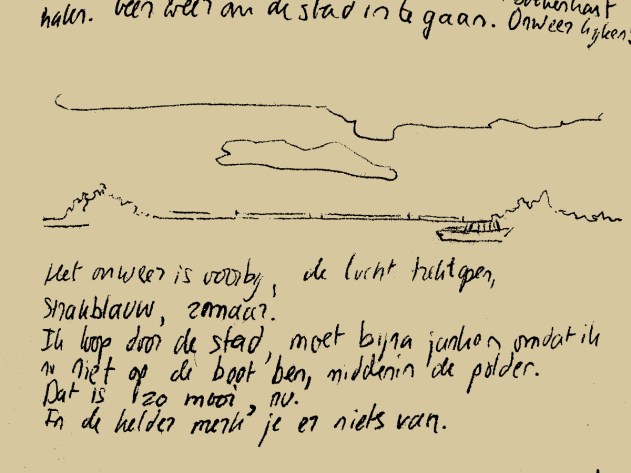 halen. Geen weer om de stad in te gaan. Onweer lijken
Het onweer is voorbij, de lucht trekt open,
strakblauw, zomaar.
Ik loop door de stad, moet bijna janken omdat ik
nu niet op de boot ben, middenin de polder.
Dat is zo mooi, nu.
In de helder merk je er niets van.